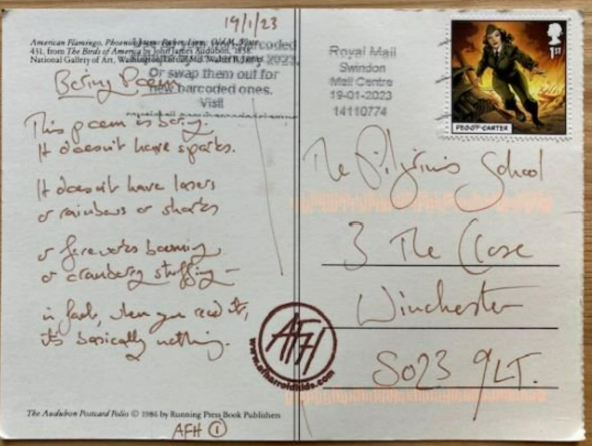 19/1/23
American Flamingo, Phoenicopterus Ruber, Linn: Old Male, Plate
431, from The Birds of America by John James Audubon, 1838.
National Gallery of Art, Washington,
barcoded
2023
Or swap them out for
new barcoded ones.
Visit
Royal Mail
Swindon
Mail Centre
19-01-2023
14110774
1ST
PEGGY CARTER
Boring Poem
This poem is boring.
It doesn't have sparks.
It doesn't have lasers
or rainbows or sharks
or fireworks booming
or cranberry stuffing –
in fact, when you read it,
it's basically nothing.
The Pilgrims' School
3 The Close
Winchester
SO23 9LT.
AFH
www.afharroldkids.com
The Audubon Postcard Folio © 1986 by Running Press Book Publishers
AFH ①